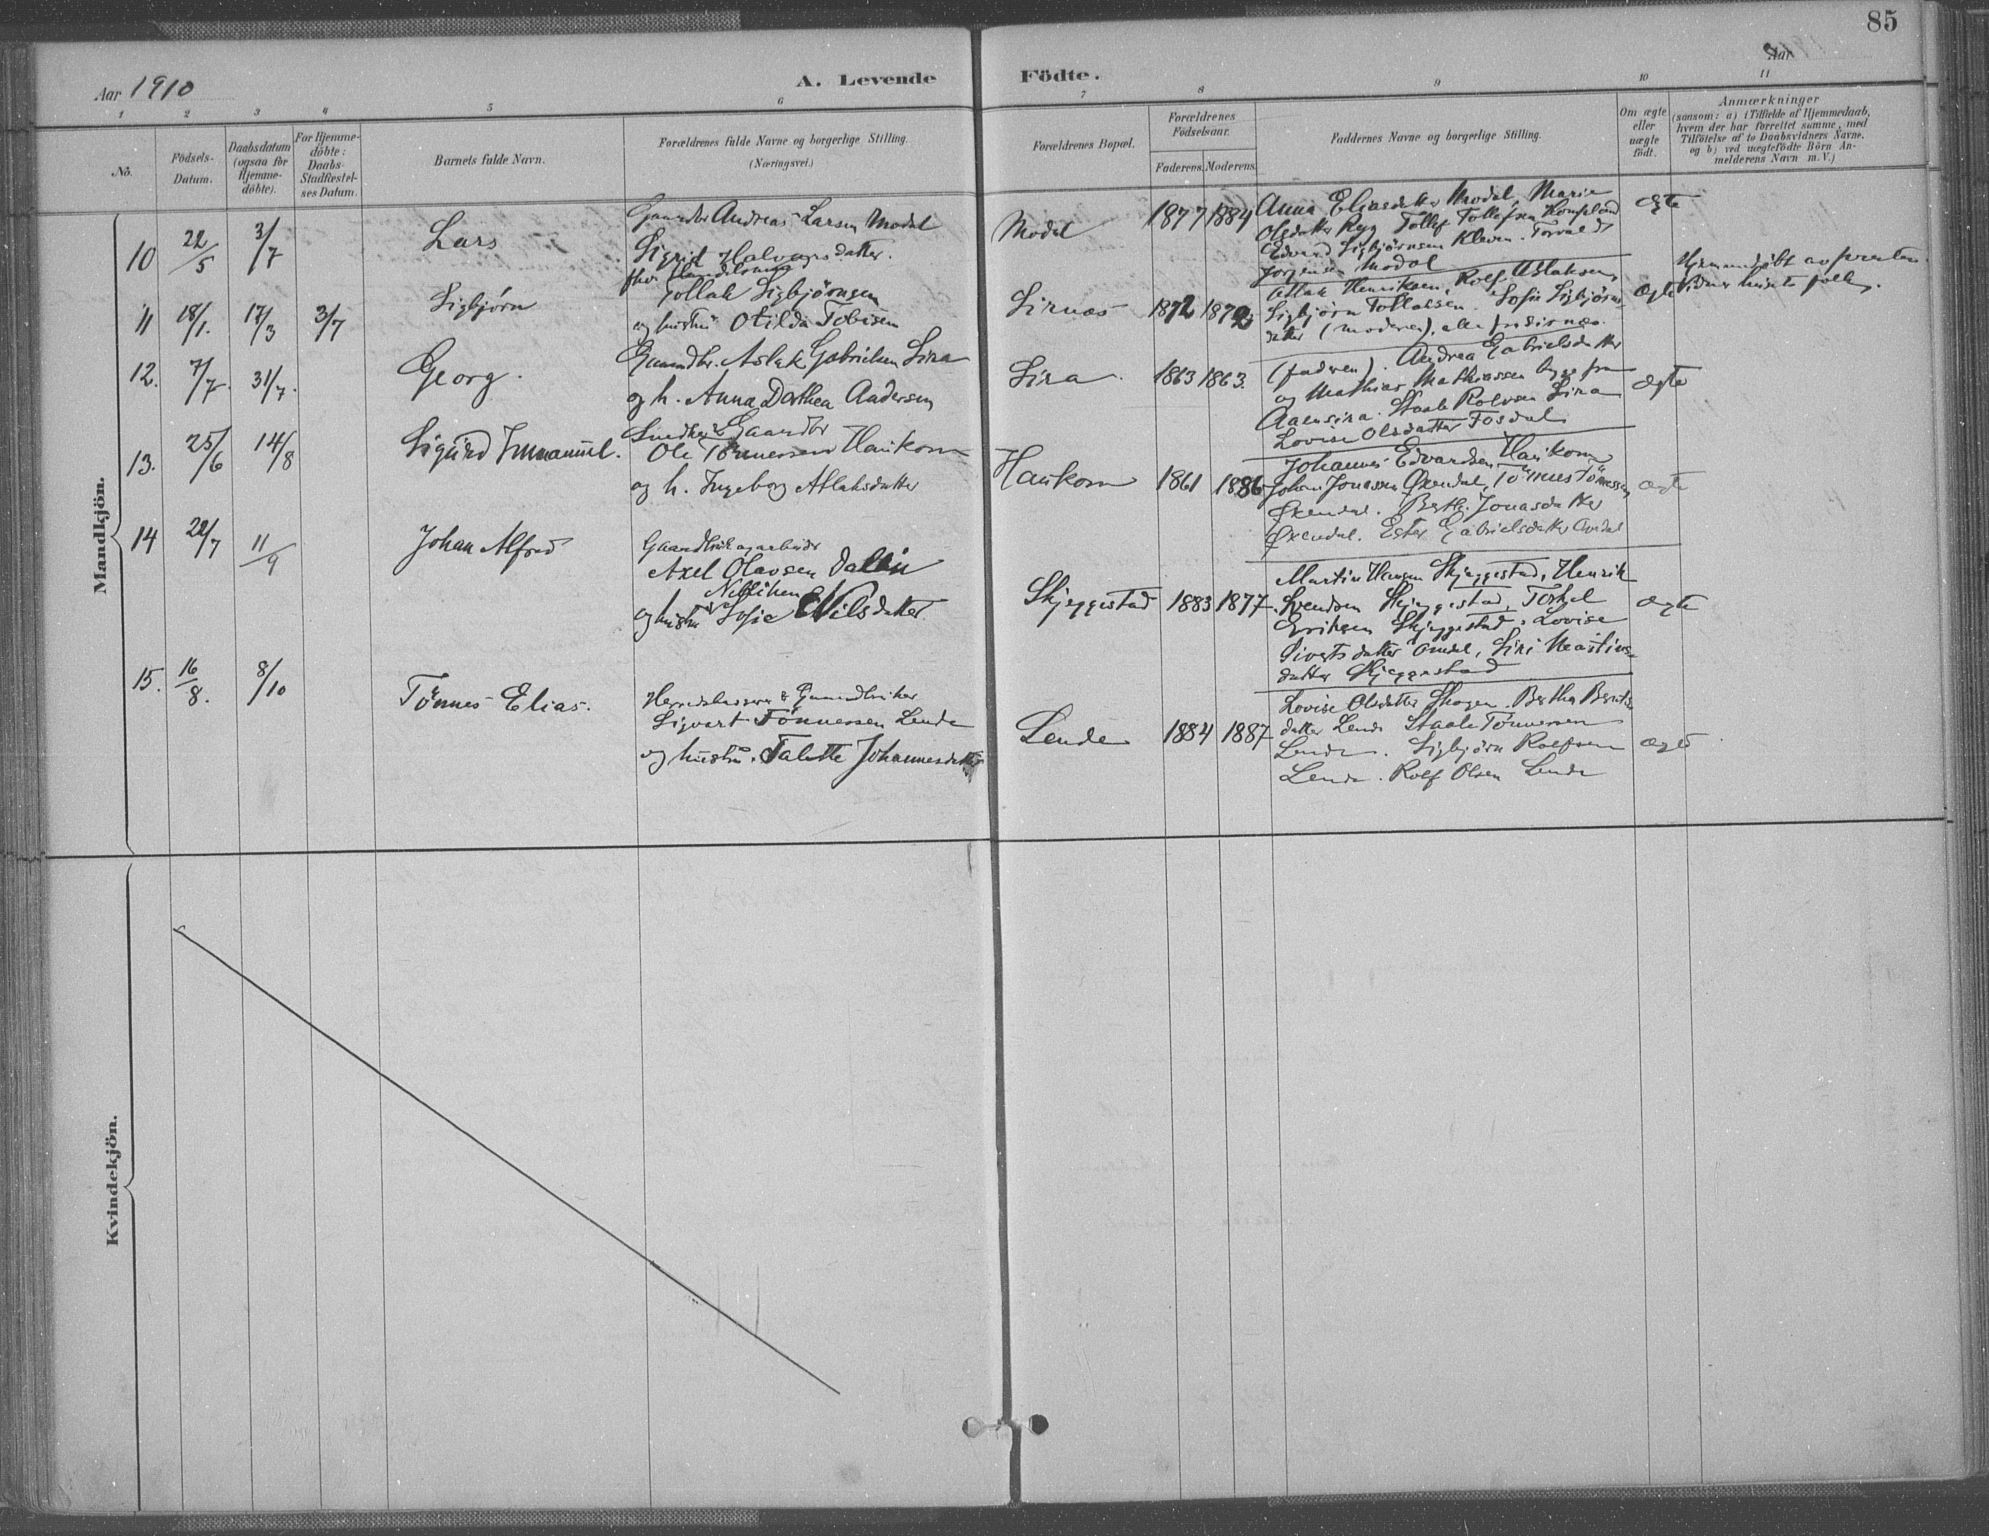 85
Aar 1910
A. Levende Födte.
Aar
1 2 3 4 5 6 7 8 9 10 11
No.
Födsels-Datum.
Daabsdatum (ogsaa for Hjemme-döbte).
For Hjemme-döbte: Daabs-Stadfæstel-ses Datum.
Barnets fulde Navn.
Forældrenes fulde Navne og borgerlige Stilling. (Næringsvei.)
Forældrenes Bopæl.
Forældrenes Födselsaar.
Faderens. Moderens.
Faddernes Navne og borgerlige Stilling.
Om ægte eller uægte födt.
Anmærkninger
(saasom: a) i Tilfælde af Hjemmedaab, hvem der har forrettet samme, med Tilföielse af to Daabsvidners Navne, og b) ved uægtefödte Börn An-melderens Navn m. V.)
Mandkjön.
10 22/5 3/7 Lars
Gaardbr Andreas Larsen Modal
Sigrid Halvorsdatter.
Modal 1877 1884
Anna Eliasdatter Modal, Marie
Olsdatter Ryg Tollef Tollefsen
Edvard Sigbjørnsen Kleven. Torvald
Jørgensen Modal
ægte
11 18/1. 17/3 3/7 Sigbjørn
Tollak Sigbjörnsen
og hustru Otilda Tobisen
Sirnæs 1872 1872
Aslak Henriksen, Rolf Aslaksen,
Sigbjørn Tollassen. Sofie Sigbjørns
datter (moderen), alle fra Sirnæs.
ægte
Hjemmedøbt av presten.
12. 7/7. 31/7. Georg.
Gaardbr. Aslak Gabrielsen Sira
og h. Anna Dorthea Andersen
Sira 1863 1863.
(faderen). Andrea Gabrielsdatter
og Mathias Mathiassen begge fra
Aaensira. Staale Rolvsen Sira
Lovise Olsdatter Fosdal
ægte
13. 25/6 14/8 Sigurd Immanuel.
Snedker & Gaardbr
Ole Tönnessen Haukom
og h. Ingeborg Aslaksdatter
Haukom 1861 1886
Johannes Edvardsen Haukom
Johan Jonassen Øxendal, Tönnes Tönnessen
Øxendal. Berthe Jonasdatter
Øxendal. Ester Gabrielsdatter Omdal
ægte
14 22/7 11/9 Johan Alfred
Gaardbruker og arbeider
Axel Olavsen Dalin
og hustru Sofie Nilsdatter
Skjeggestad 1883 1877.
Martin Hansen Skjeggestad, Henrik
Svendsen Skjeggestad, Torkel
Eriksen Skjeggestad, Lovise
Sivertsdatter Omdal, Siri Martins-
datter Skjeggestad
ægte
15. 16/8. 8/10 Tönnes Elias.
Herredskasserer & Gaardbruker
Sigvart Tönnessen Lende
og hustru Talette Johannesdatter
Lende 1884 1887
Lovise Olsdatter Skogen. Bertha Bernts
datter Lende Staale Tönnessen
Lende. Sigbjörn Rolfsen
Lende. Rolf Olsen Lende
ægte
Kvindekjön.